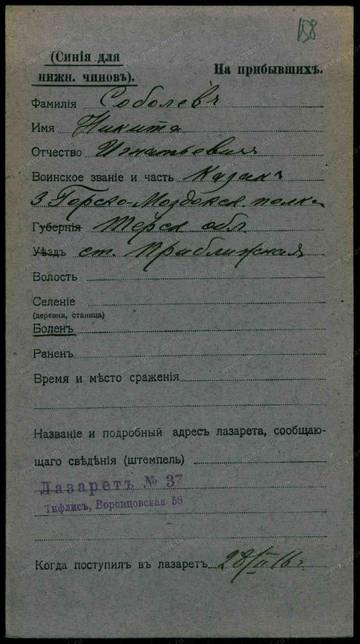 158
(Синія для
нижн. чиновъ).
На прибывшихъ.
Фамилія Соболевъ
Имя Никита
Отчество Игнатьевич
Воинское званіе и часть Казакъ
3 Горско-Моздокск. полка
Губернія Терск обл
Уѣздъ ст. Приближная
Волость
Селеніе
(деревня, станица)
Боленъ
Раненъ
Время и мѣсто сраженія
Названіе и подробный адресъ лазарета, сообщаю-
щаго свѣдѣнія (штемпель)
Лазаретъ № 37
Тифлисъ, Воронцовская 58
Когда поступилъ въ лазаретъ 28/II 16 г.